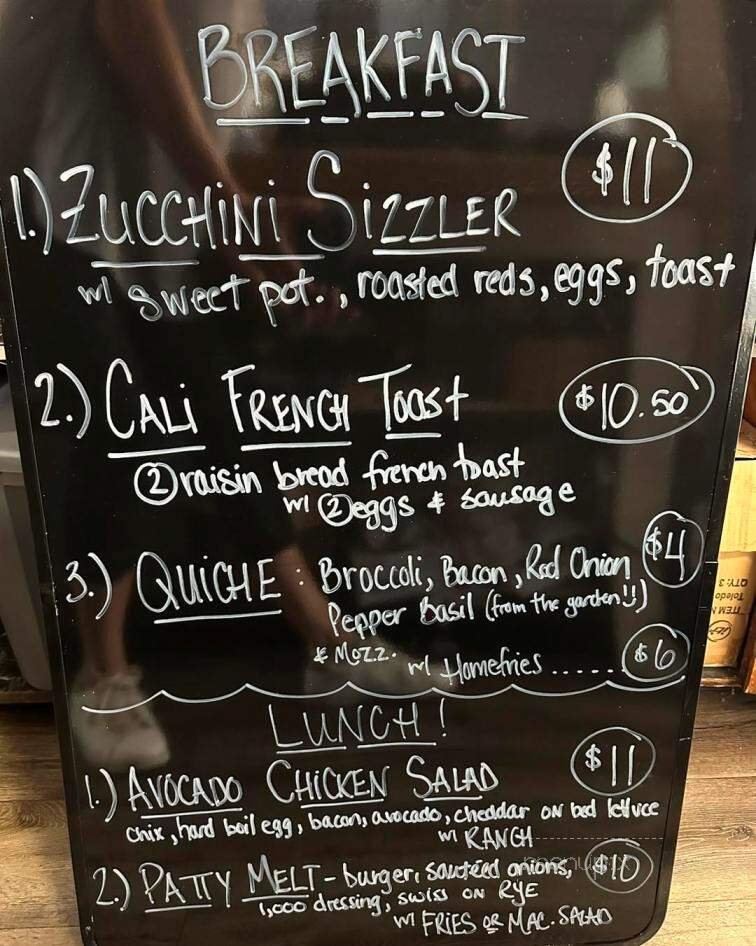 BREAKFAST
1.) ZUCCHINI SIZZLER $11
w/ sweet pot., roasted reds, eggs, toast
2.) CALI FRENCH TOAST $10.50
2 raisin bread french toast
w/ 2 eggs & sausage
3.) QUICHE: Broccoli, Bacon, Red Onion $4
Pepper Basil (from the garden!!)
& MOZZ. w/ Homefries ...... $6
LUNCH!
1.) AVOCADO CHICKEN SALAD $11
chix, hard boil egg, bacon, avocado, cheddar ON bed lettuce
w/ RANCH
2.) PATTY MELT - burger, sautéed onions, $10
1,000 dressing, swiss ON RYE
w/ FRIES OR MAC. SALAD
ITEM
Toledo
QTY: 3